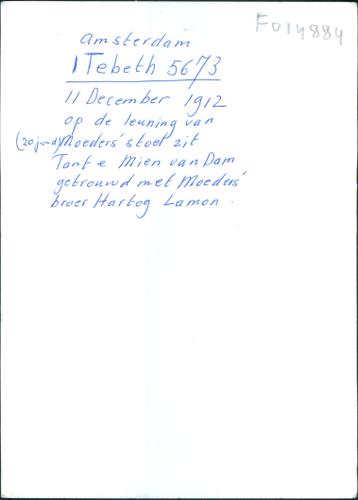 F014884
Amsterdam
1 Tebeth 5673
11 December 1912
op de leuning van
(20 jond) Moeders' stoel zit
Tante Mien van Dam
getrouwd met Moeders'
broer Hartog Lamon.